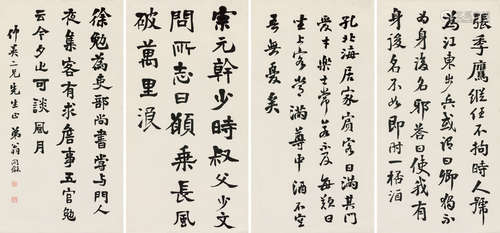 張季鷹縱任不拘時人號
為江東步兵或謂曰卿獨不
為身後名邪答曰使我有
身後名不如即時一桮酒
孔北海居家賓客日滿其門
愛才樂士常若不及每歎曰
坐上客常滿尊中酒不空
吾無憂矣
宗元幹少時叔父少文
問所志曰願乘長風
破萬里浪
徐勉為吏部尚書嘗與門人
夜集客有求詹事五官勉
云今夕止可談風月
仲英二兄先生正 弟翁